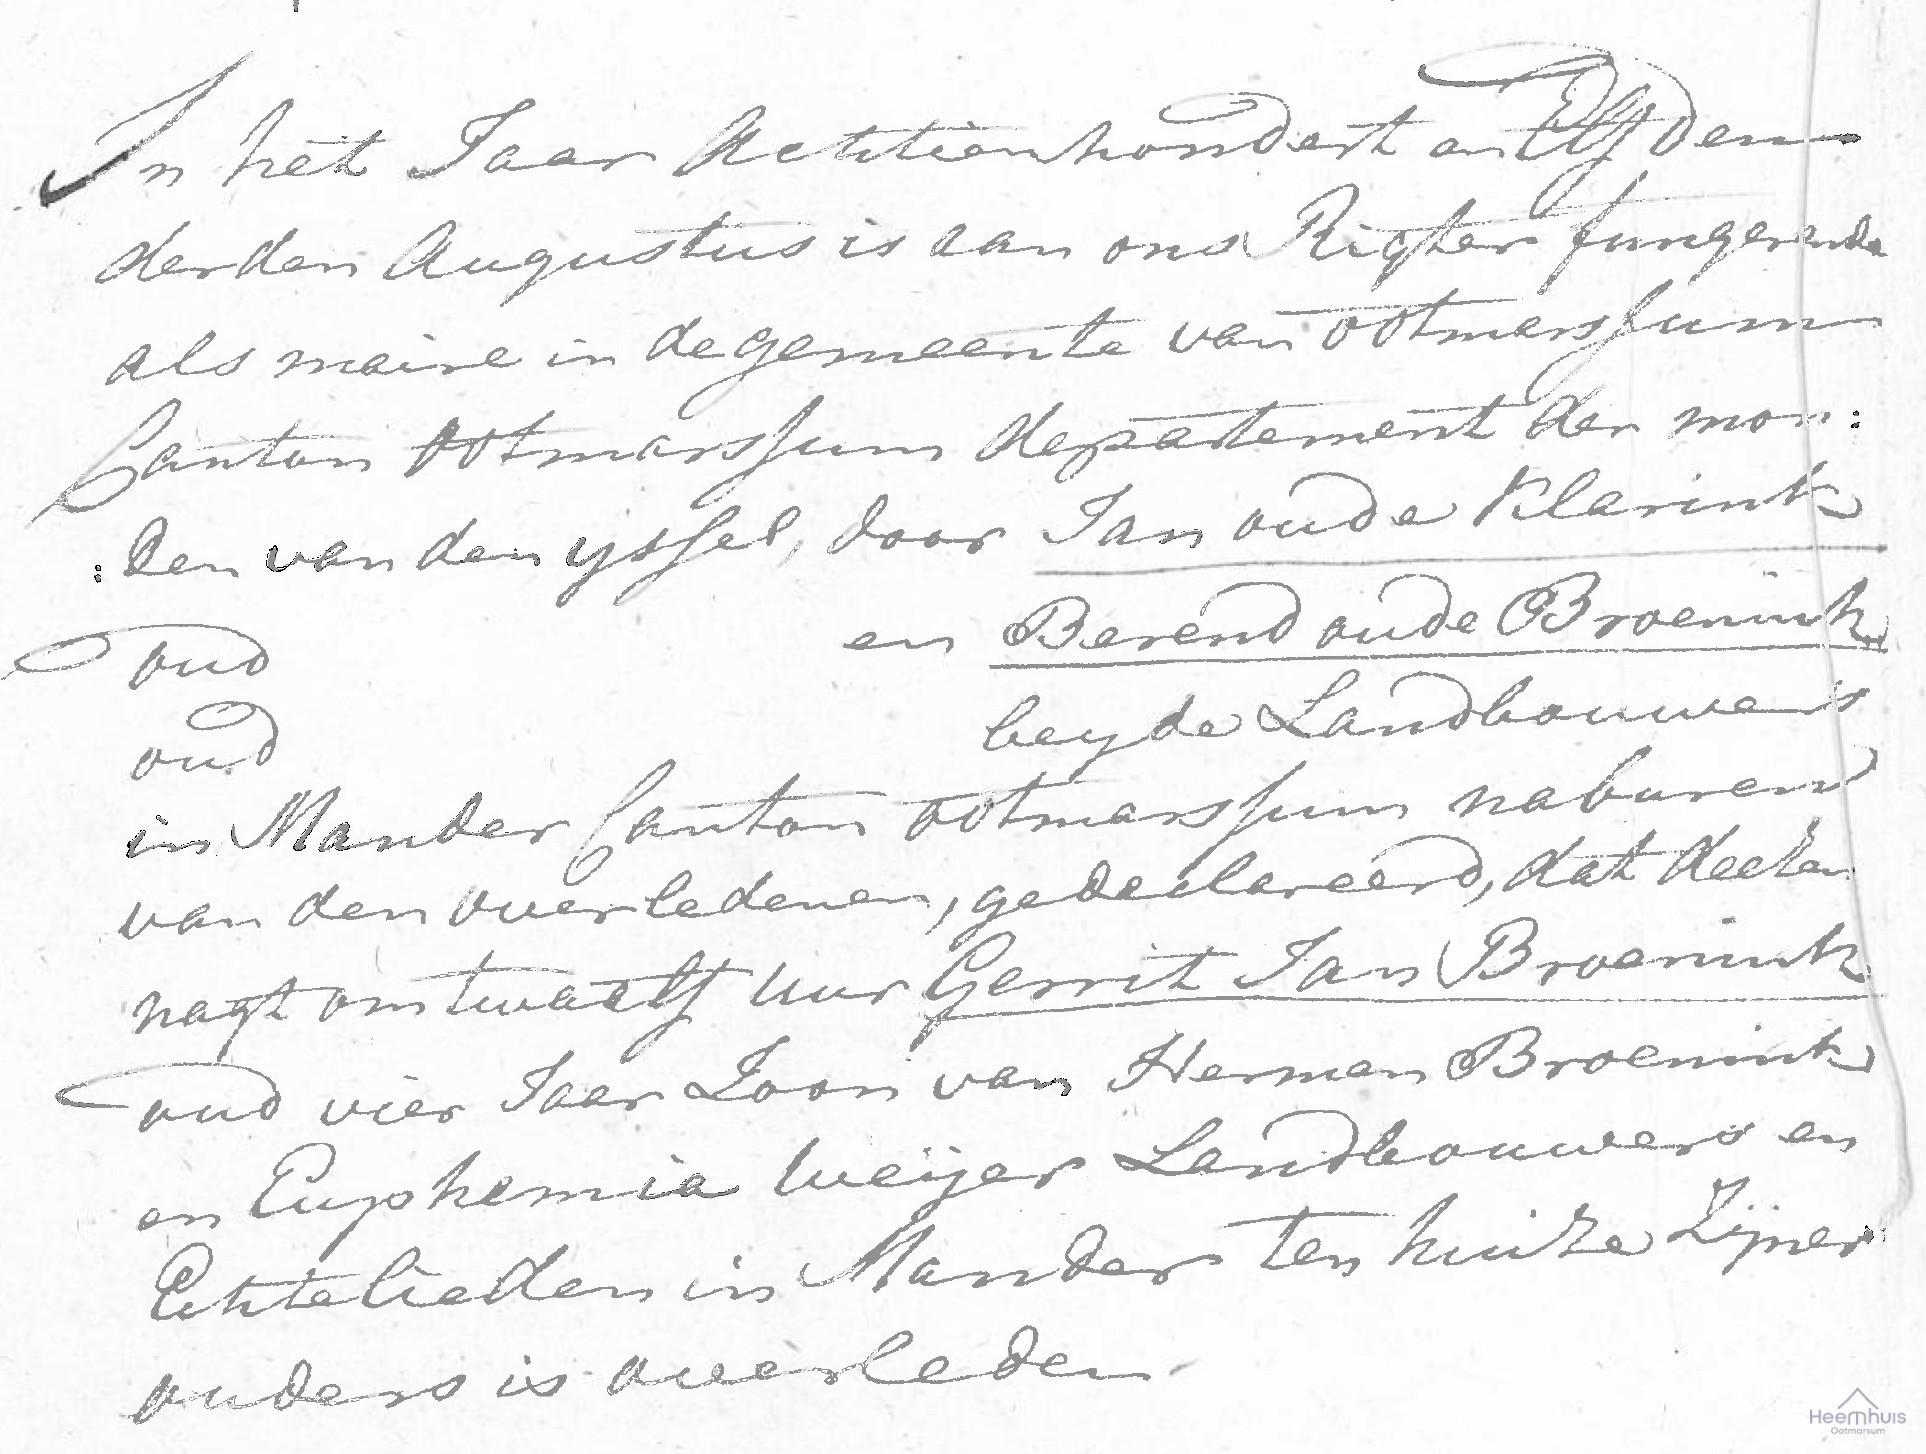 In het Jaar Achttienhondert en Elf den
derden Augustus is aan ons Rigter fungerende
als maire in de gemeente van Ootmarssum
Canton Ootmarssum departement der mon:
:den van den yssel, door Jan oude Klarink
oud en Berend oude Broenink
oud beyde Landbouwers
in Mander Canton Ootmarssum naburen
van den overledenen, gedeclareerd, dat deezen
nagt om twaalf uur Gerrit Jan Broenink
oud vier Jaar Zoon van Hermen Broenink
en Euphemia Weijer Landbouwers en
Echtelieden in Mander ten huize Zijner
ouders is overleden
Heemhuis
Ootmarsum